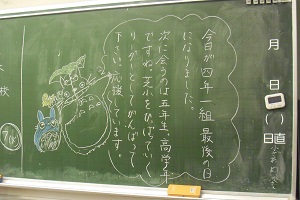 今日が四年一組最後の日
になりました。
次に会うのは五年生、高学年
ですね。芝小をひっぱっていく
リーダーとしてがんばって
下さい。応援しています。
月
日
( )
日直
校